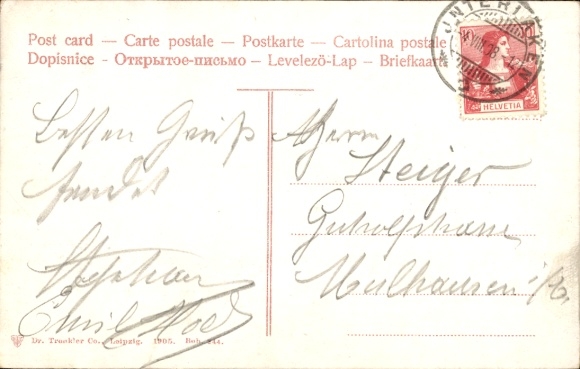 Post card — Carte postale — Postkarte — Cartolina postale
Dopisnice — Открытое-письмо — Levelező-Lap — Briefkaart
UNTERLAKEN
HELVETIA
Besten Gruß
sendet
Emil
Herrn
Steiger
Mülhausen i/E.
Dr. Trenkler Co., Leipzig. 1905. Beh. 244.